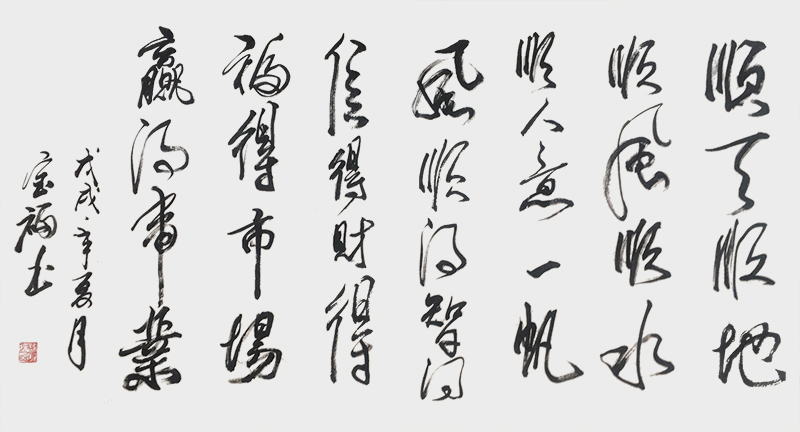 順天順地
順風順水
順人意一帆
風順得智得
信得財得
福得市場
贏得事業
戊戌年夏月
宝福书